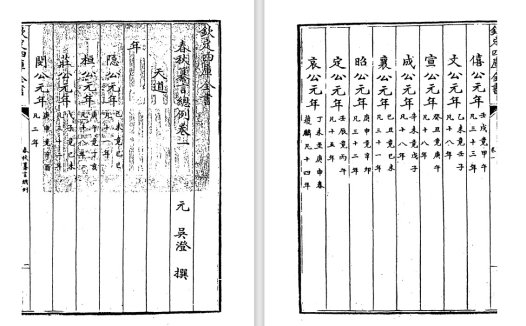 欽定四庫全書
春秋纂言總例卷一
元 吳澄 撰
天道
年
隱公元年 己未竟己巳
桓公元年 庚午竟丁亥 凡十八年
莊公元年 戊子竟己未 凡三十二年
閔公元年 庚申竟辛酉 凡二年
欽定四庫全書
春秋纂言總例
欽定四庫全書
卷一
僖公元年 壬戌竟甲午 凡三十三年
文公元年 乙未竟壬子 凡十八年
宣公元年 癸丑竟庚午 凡十八年
成公元年 辛未竟戊子 凡十八年
襄公元年 己丑竟己未 凡三十一年
昭公元年 庚申竟辛卯 凡三十二年
定公元年 壬辰竟丙午 凡十五年
哀公元年 丁未至庚申春 獲麟凡十四年